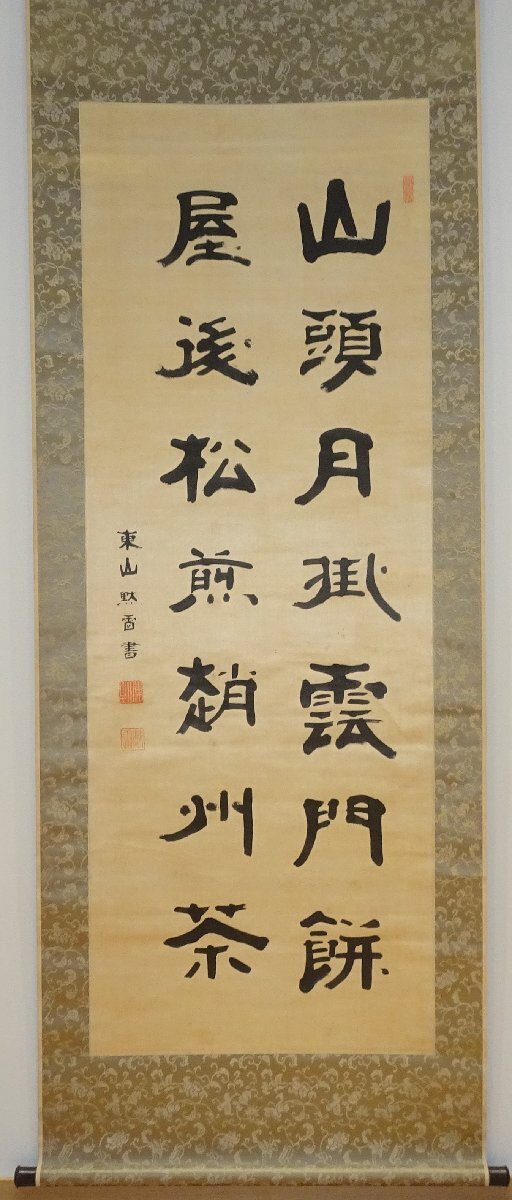 山頭月掛雲門餅
屋後松煎趙州茶
東山黙雷書